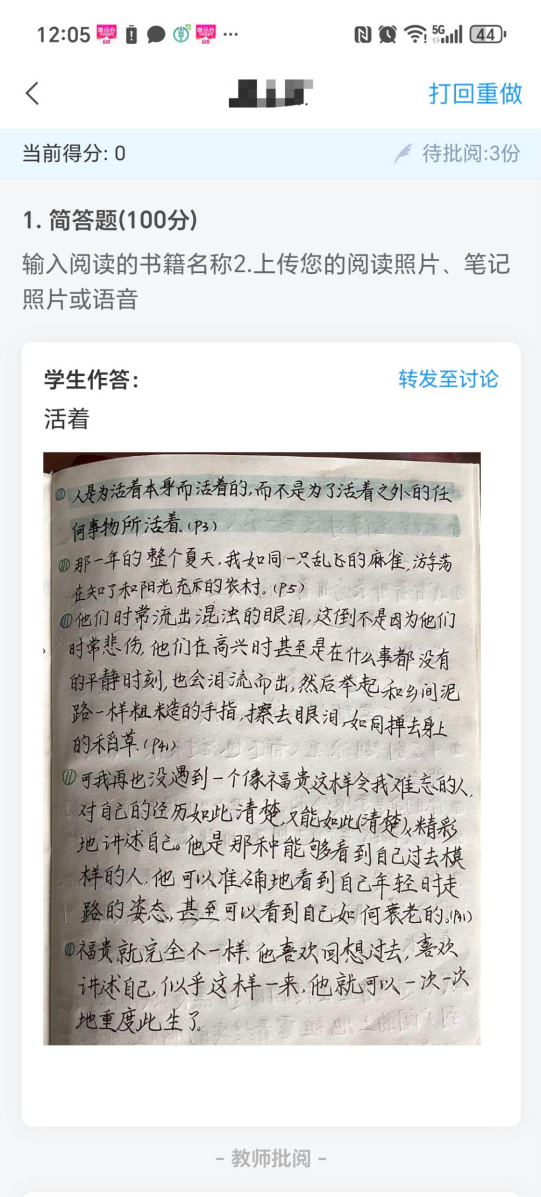 12:05 ... 5G 44
打回重做
当前得分: 0 待批阅:3份
1. 简答题(100分)
输入阅读的书籍名称2.上传您的阅读照片、笔记
照片或语音
学生作答： 转发至讨论
活着
人是为活着本身而活着的,而不是为了活着之外的任
何事物所活着.(P3)
那一年的整个夏天,我如同一只乱飞的麻雀,游荡
在知了和阳光充斥的农村.(P5)
他们时常流出混浊的眼泪,这倒不是因为他们
时常悲伤,他们在高兴时甚至是在什么事都没有
的平静时刻,也会泪流而出,然后举起和乡间泥
路一样粗糙的手指,擦去眼泪,如同掸去身上
的稻草.(P41)
可我再也没遇到一个像福贵这样令我难忘的人,
对自己的经历如此清楚,又能如此(清楚),精彩
地讲述自己。他是那种能够看到自己过去模
样的人,他可以准确地看到自己年轻时走
路的姿态,甚至可以看到自己如何衰老的.
福贵就完全不一样,他喜欢回想过去,喜欢
讲述自己,似乎这样一来,他就可以一次一次
地重度此生了。
- 教师批阅 -